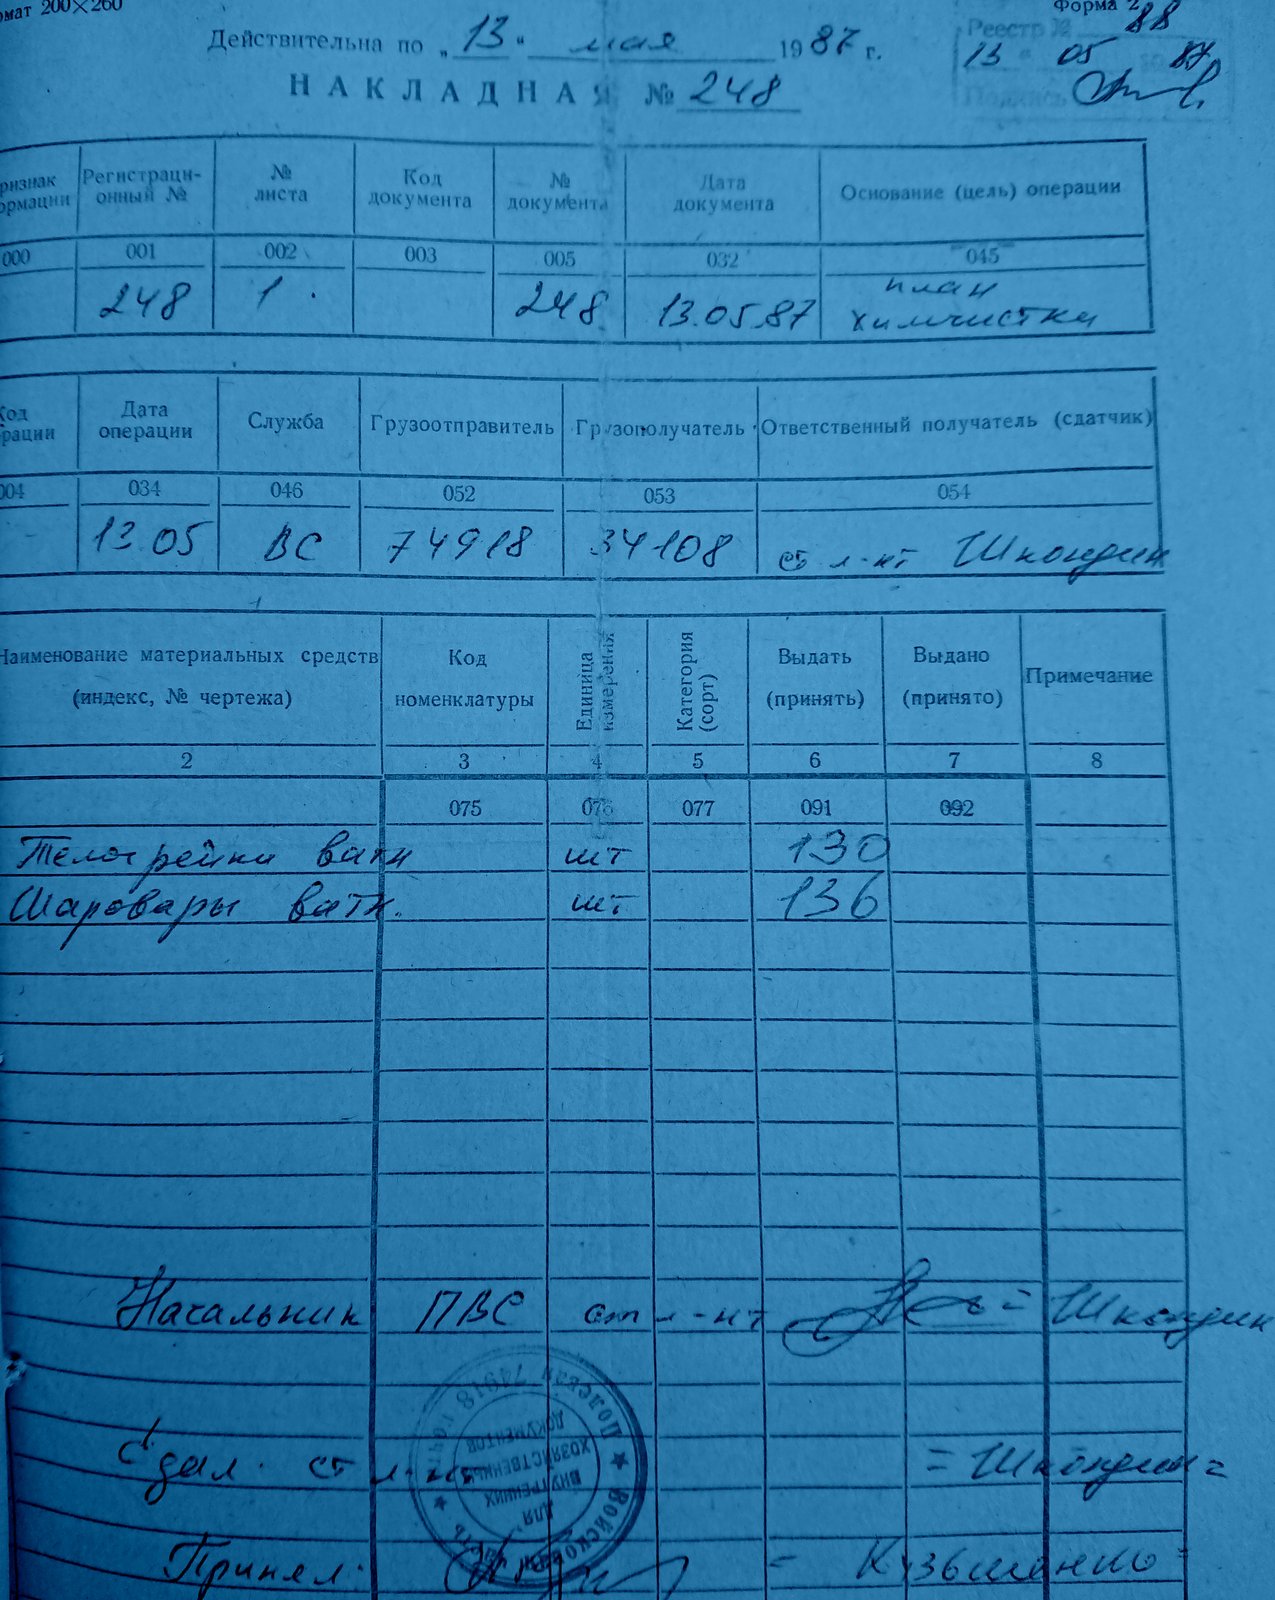 рмат 200×260
Форма 2
Действительна по „ 13 “ мая 1987 г.
Реестр № 88
13 " 05 1987
Подпись
НАКЛАДНАЯ № 248
ризнак ормации Регистраци-онный № № листа Код документа № документа Дата документа Основание (цель) операции
000 001 002 003 005 032 045
248 1. 248 13.05.87 план химчистки
Код рации Дата операции Служба Грузоотправитель Грузополучатель Ответственный получатель (сдатчик)
004 034 046 052 053 054
13.05 ВС 74918 34108 ст л-нт Шкондин
Наименование материальных средств (индекс, № чертежа) Код номенклатуры Единица измерения Категория (сорт) Выдать (принять) Выдано (принято) Примечание
2 3 4 5 6 7 8
075 076 077 091 092
Телогрейки ватн шт 130
Шаровары ватн. шт 136
Начальник ПВС ст л-нт = Шкондин
Сдал. ст л-нт = Шкондин =
Принял. = Кузьменко =
★ Войсковая часть ★ Полевая 74918
ДЛЯ ВНУТРЕННИХ ХОЗЯЙСТВЕННЫХ ДОКУМЕНТОВ